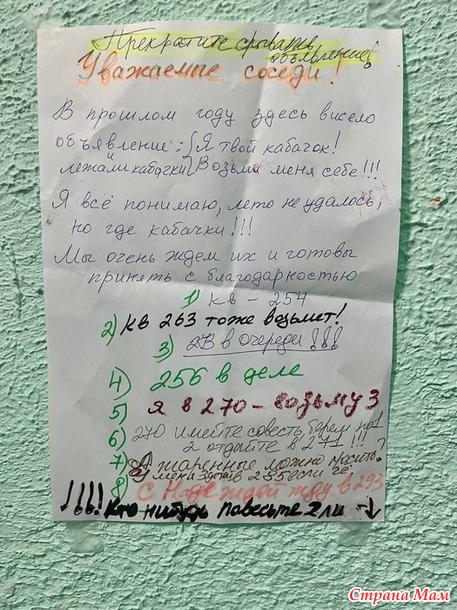 Прекратите срывать
объявление!
Уважаемые соседи!
В прошлом году здесь висело
объявление: Я твой кабачок!
и лежали кабачки Возьми меня себе!!!
Я всё понимаю, лето не удалось,
но где кабачки!!!
Мы очень ждем их и готовы
принять с благодарностью
1) кв - 254
2) кв 263 тоже возьмет!
3) в очереди!!!
4) 256 в деле
5) Я в 270 - возьму 3
6) 270 имейте совесть берем по 1
2 отдайте в 271!!!
7) А жаренные можно
в 255 если
8) С Надеждой жду в 293
!!!! кто нибудь повесьте
Страна Мам